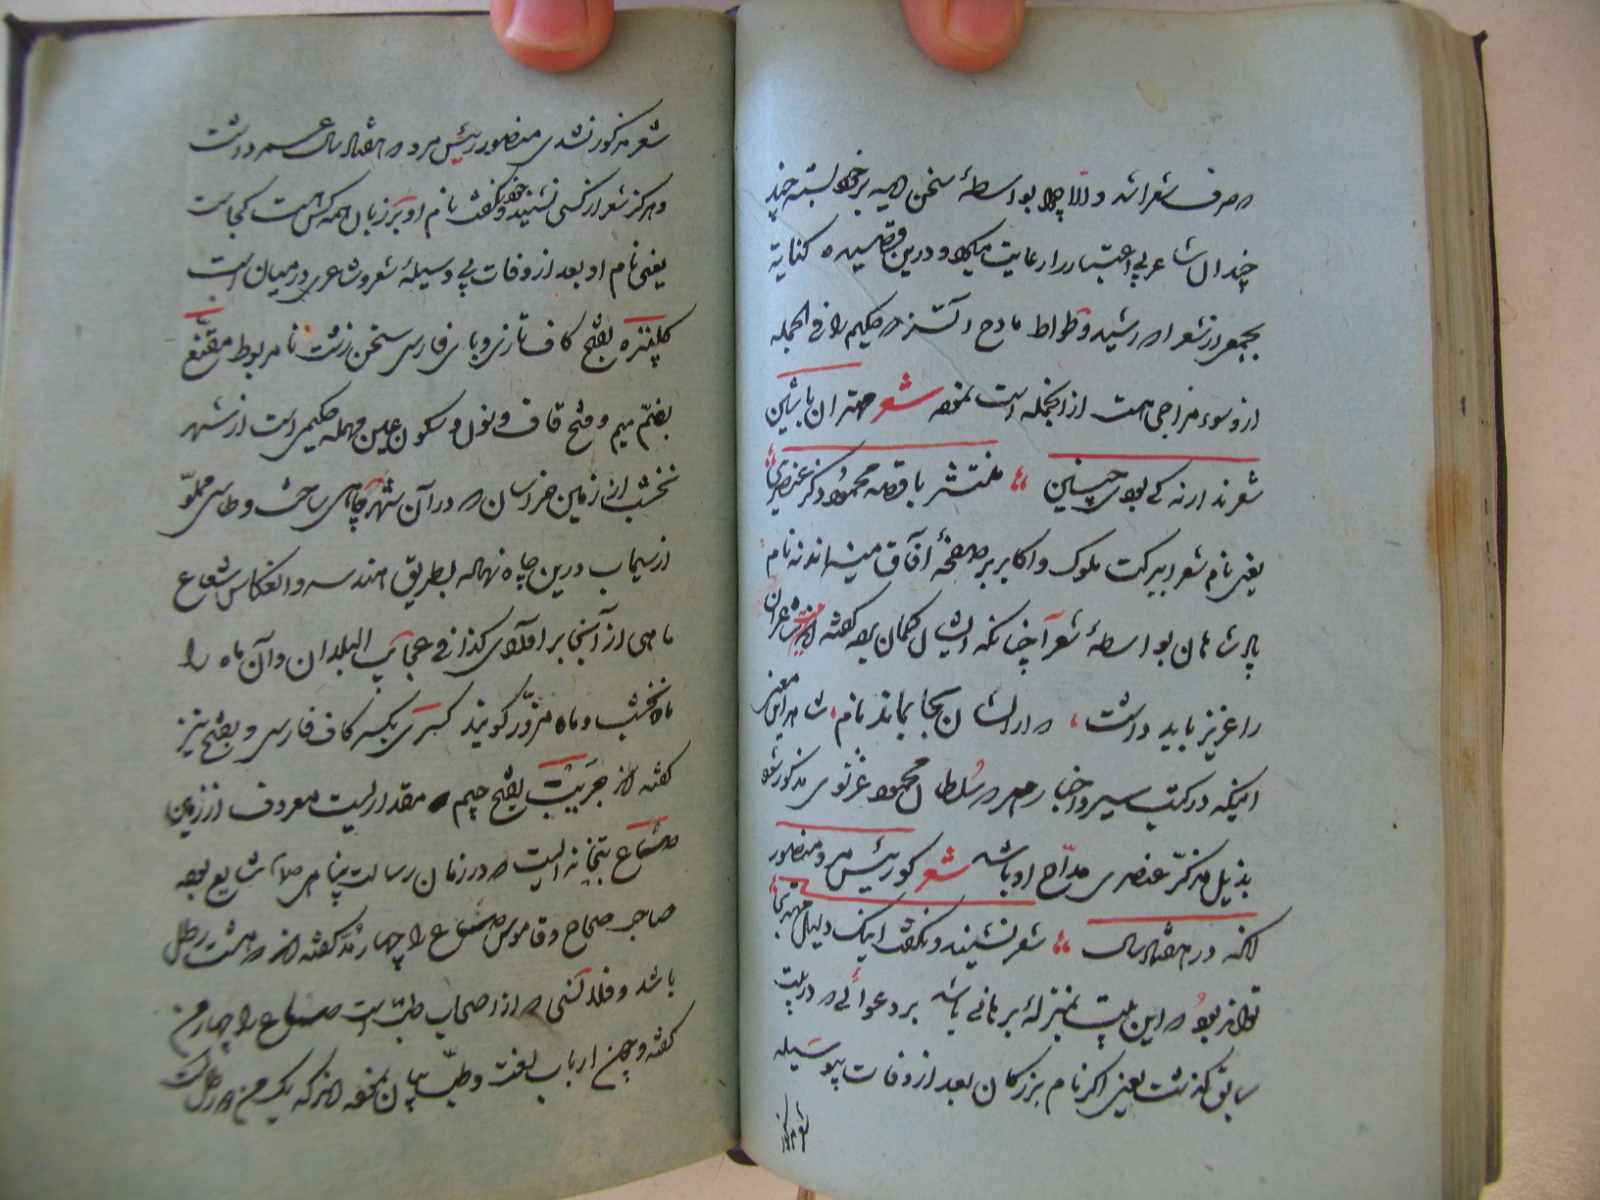 که صرف شعر اشد والا چرا بواسطهٔ سخن که بر خود بسته چند
چندان شاعر بی اعتبار را رعایت میکرد و درین قصیده کنایة
بجمعی از شعرا که رشید وطواط مادح اتسز که حکیم را فی الجمله
ازو سوء مزاجی هست از انجمله است نموده شعر مهتران با شین
شعر ند ار نه کی بودی چنین منتشر با قصهٔ محمود ذکر عنصری
یعنی نام شعرا ببرکت ملوک و اکابر بر صفحهٔ آفاق میماند نه نام
پادشاهان بواسطهٔ شعرا چنانکه ایشان گمان برده گفته اند شاعران
را عزیز باید داشت که از ایشان بجا بماند نام شاهد این معنی
اینکه در کتب سیر و اخبار هر که سلطان محمود غزنوی مذکور شود
بذیل مذکر عنصری مداح او باشد شعر کو رئیس مرو منصور
انکه در هفتاد سال شعر نشنید و نگفت اینک دلیل مهتری
تواند بود که این بیت بمنزلهٔ برهانی باشد بر دعوائی که در بیت
سابق گذشت یعنی اکر نام بزرکان بعد از وفات بوسیله
شعر مذکور
شعر مذکور نشدی منصور رئیس مرو که هفتاد سال عمر داشت
و هرکز شعر از کسی نشنیده و خود نگفت نام او بر زبان همه کس هست کجاست
یعنی نام او بعد از وفات بی وسیلهٔ شعر و شاعری در میان است
کلپتره بفتح کاف تازی و بای فارسی سخن زشت نامربوط مقنع
بضم میم و فتح قاف و نون و سکون عین مهمله حکیمی است از شهر
نخشب از زمین خراسان که در آن شهر چاهی ساخت و طاسی مملو
از سیماب درین چاه نهاد که بطریق هندسه و انعکاس شعاع
ماهی از آنجا بر آمدی کذا فی عجایب البلدان و آن ماه را
ماه نخشب و ماه مزور کویند کسری بکسر کاف فارسی و بفتح نیز
کفته اند جریب بفتح جیم مقداریست معروف از زمین
صاع پیمانه ایست که در زمان رسالت پناهی شایع بوده
صاحب صحاح و قاموس صاع را چهار مد کفته اند که هشت رطل
باشد و قلانسی که از اصحاب طب است صاع را چهار من
کفته و چون ارباب لغت و طب بیان نموده اند که یک من دو رطل است